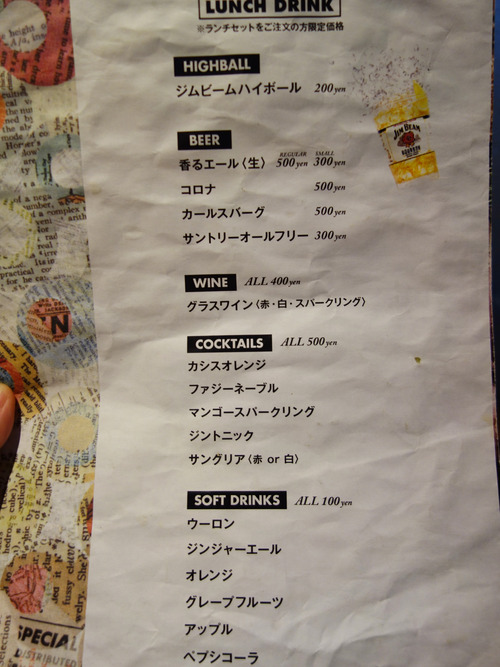 LUNCH DRINK
※ランチセットをご注文の方限定価格
HIGHBALL
ジムビームハイボール 200yen
JIM BEAM
BEER
REGULAR SMALL
香るエール〈生〉 500yen 300yen
コロナ 500yen
カールスバーグ 500yen
サントリーオールフリー 300yen
WINE ALL 400yen
グラスワイン〈赤・白・スパークリング〉
COCKTAILS ALL 500yen
カシスオレンジ
ファジーネーブル
マンゴースパークリング
ジントニック
サングリア〈赤 or 白〉
SOFT DRINKS ALL 100yen
ウーロン
ジンジャーエール
オレンジ
グレープフルーツ
アップル
ペプシコーラ
SPECIAL
DISTRIBUTED